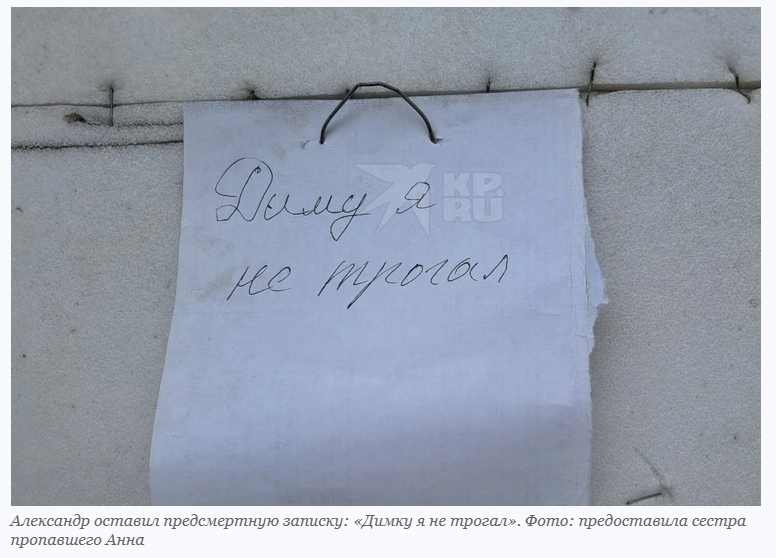 Диму я
не трогал
KP.
RU
Александр оставил предсмертную записку: «Димку я не трогал». Фото: предоставила сестра
пропавшего Анна